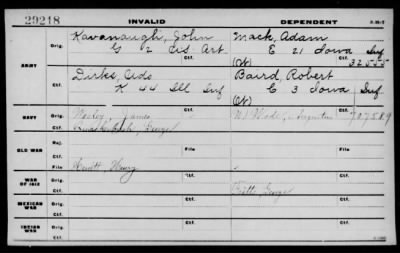 29218 INVALID DEPENDENT
Kavanaugh, John Mack, Adam
Orig. G 2 US Art Orig. E 21 Iowa Inf
ARMY (Ct) 32555
Dirks, Baird, Robert
Ctf. K 44 Ill Inf Ctf. C 3 Iowa Inf
(Ct)
NAVY Orig. James Orig. Wade, Augustus 707589
Ctf. George Ctf.
OLD WAR Rej.
File Hewitt, Henry File
WAR OF 1812 Orig. Orig.
Ctf. Ctf. George
MEXICAN WAR Orig. Orig.
Ctf. Ctf.
INDIAN WAR Orig. Orig.
Ctf. Ctf.